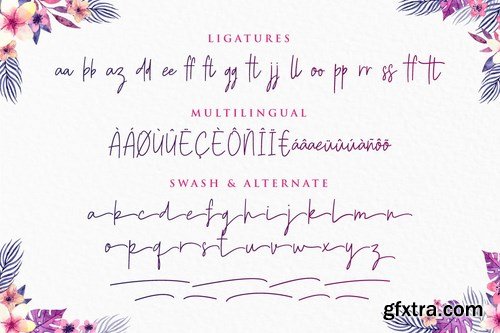 LIGATURES
aa bb az dd ee ff ft gg tt jj ll oo pp rr ss tt tt
MULTILINGUAL
ÀÁØÙÛÊÇÈÔÑÎÏ£áâaeùûúàñôõ
SWASH & ALTERNATE
a b c d e f g h i j k l m n
o p q r s t u v w x y z
gfxtra.com